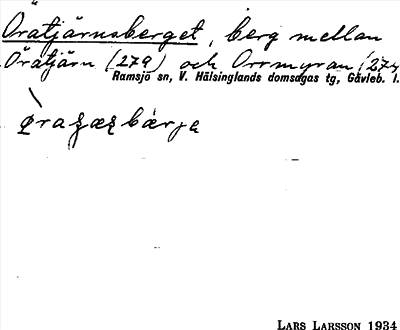 Öratjärnsberget, berg mellan
Öratjärn (279) och Orrmyran (274)
Ramsjö sn, V. Hälsinglands domsagas tg, Gävleb. l.
LARS LARSSON 1934